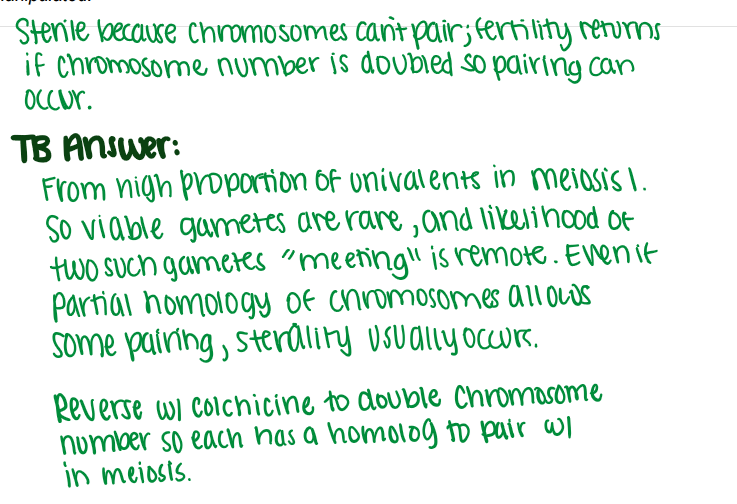 Sterile because chromosomes can't pair; fertility returns
if chromosome number is doubled so pairing can
occur.
TB Answer:
From high proportion of univalents in meiosis 1.
So viable gametes are rare, and likelihood of
two such gametes "meeting" is remote. Even if
partial homology of chromosomes allows
some pairing, sterility usually occurs.
Reverse w/ colchicine to double chromosome
number so each has a homolog to pair w/
in meiosis.